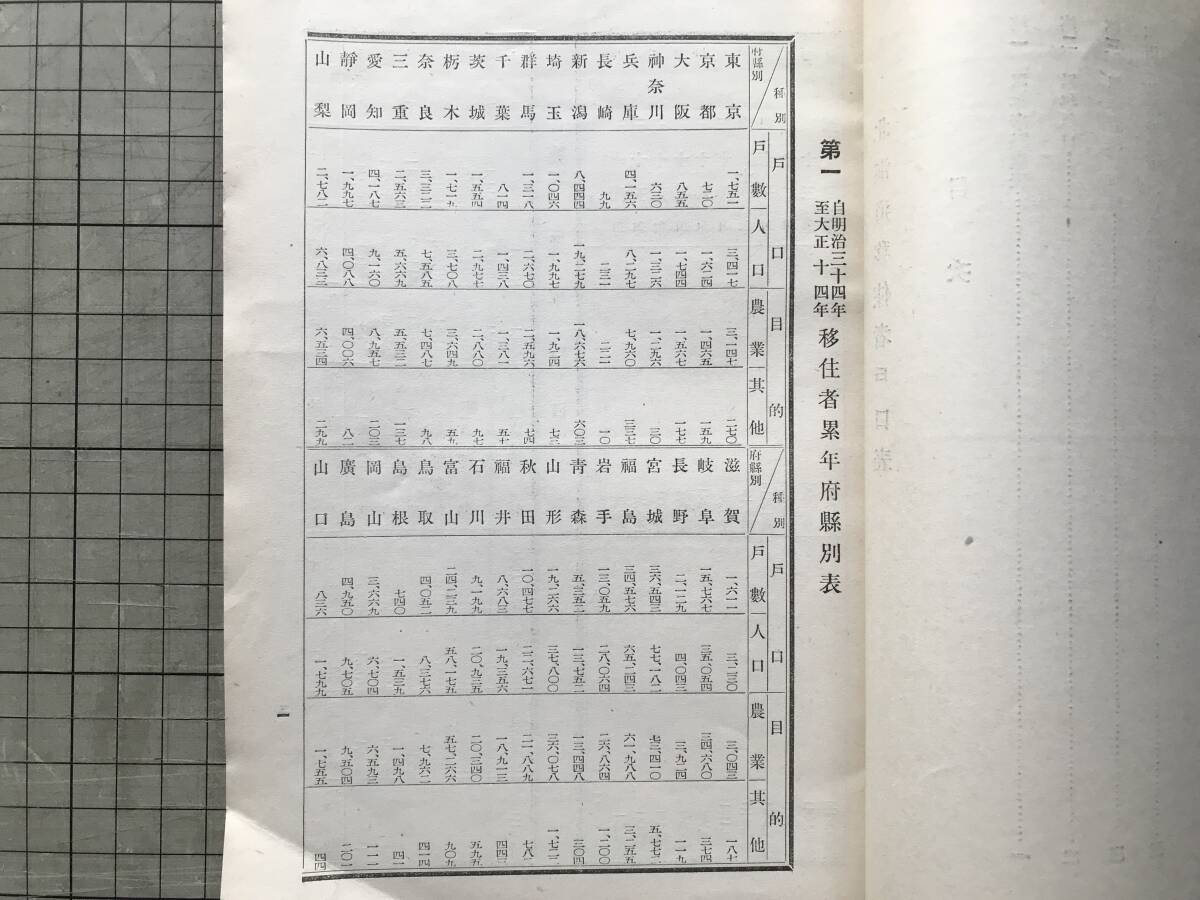 第一 自明治三十四年
至大正十四年
移住者累年府縣別表
府縣別 種別 戸口 戸數 人口 目的 農業 其他
東京 一、七五一 三、四一七 三、一四七 二七〇
京都 七二〇 一、六二四 一、四六五 一五九
大阪 八五五 一、七四四 一、五六七 一七七
神奈川 六三〇 一、三二六 一、二九六 三〇
兵庫 四、一五六 八、二九七 七、九六〇 三三七
長崎 九九 二三一 二二一 一〇
新潟 八、四四四 一九、二七九 一八、六七六 六〇三
埼玉 一、〇四六 一、九九七 一、九二四 七三
群馬 一、三一八 二、六七〇 二、五九六 七四
千葉 八一四 一、四三八 一、三八一 五七
茨城 一、五五四 二、九七七 二、八八〇 九七
栃木 一、七一九 三、七〇八 三、六四九 五九
奈良 三、三二二 七、五八五 七、四八七 九八
三重 二、五六三 五、六六九 五、五三二 一三七
愛知 四、一八七 九、一六〇 八、九五七 二〇三
靜岡 一、九九七 四、〇八八 四、〇〇六 八二
山梨 二、七八二 六、八三三 六、五三四 二九九
府縣別 種別 戸口 戸數 人口 目的 農業 其他
滋賀 一、六一一 三、二三〇 三、〇四三 一八七
岐阜 一五、七六七 三五、〇五四 三四、六八〇 三七四
長野 二、一二九 四、〇四三 三、九二四 一一九
宮城 三六、五四三 七七、一八二 七三、四一〇 五、七七二
福島 三四、五七六 六五、二四三 六一、九八八 三、二五五
岩手 一三、〇五九 二八、〇六四 二六、八六四 一、二〇〇
青森 五、三五二 一三、七五二 一三、四四八 三〇四
山形 一九、二六六 三七、八〇〇 三六、〇七八 一、七二二
秋田 一〇、四七七 二二、六七一 二一、八八九 七八二
福井 八、六八三 一九、三五六 一八、九一三 四四三
石川 九、一九九 二〇、九三五 二〇、三四〇 五九五
富山 二四、二三九 五八、一七五 五七、二六六 九〇九
鳥取 四、〇五二 八、三七六 七、九六二 四一四
島根 七四〇 一、五三九 一、四九八 四一
岡山 三、六六九 六、七〇四 六、五九三 一一一
廣島 四、九五〇 九、七〇五 九、五〇四 二〇一
山口 八三六 一、七九九 一、七五五 四四
一